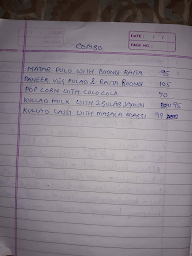 DATE: / /
PAGE NO.
COMBO
MATAR PULO WITH BOONDI RAITA 95
PANEER VEG PULAO & RAITA BOONDI 105
POP CORN WITH COCO COLA 90
KULLAD MILK WITH 2 GULAB JAMUN 95
KULLAD LASSI WITH MASALA 99